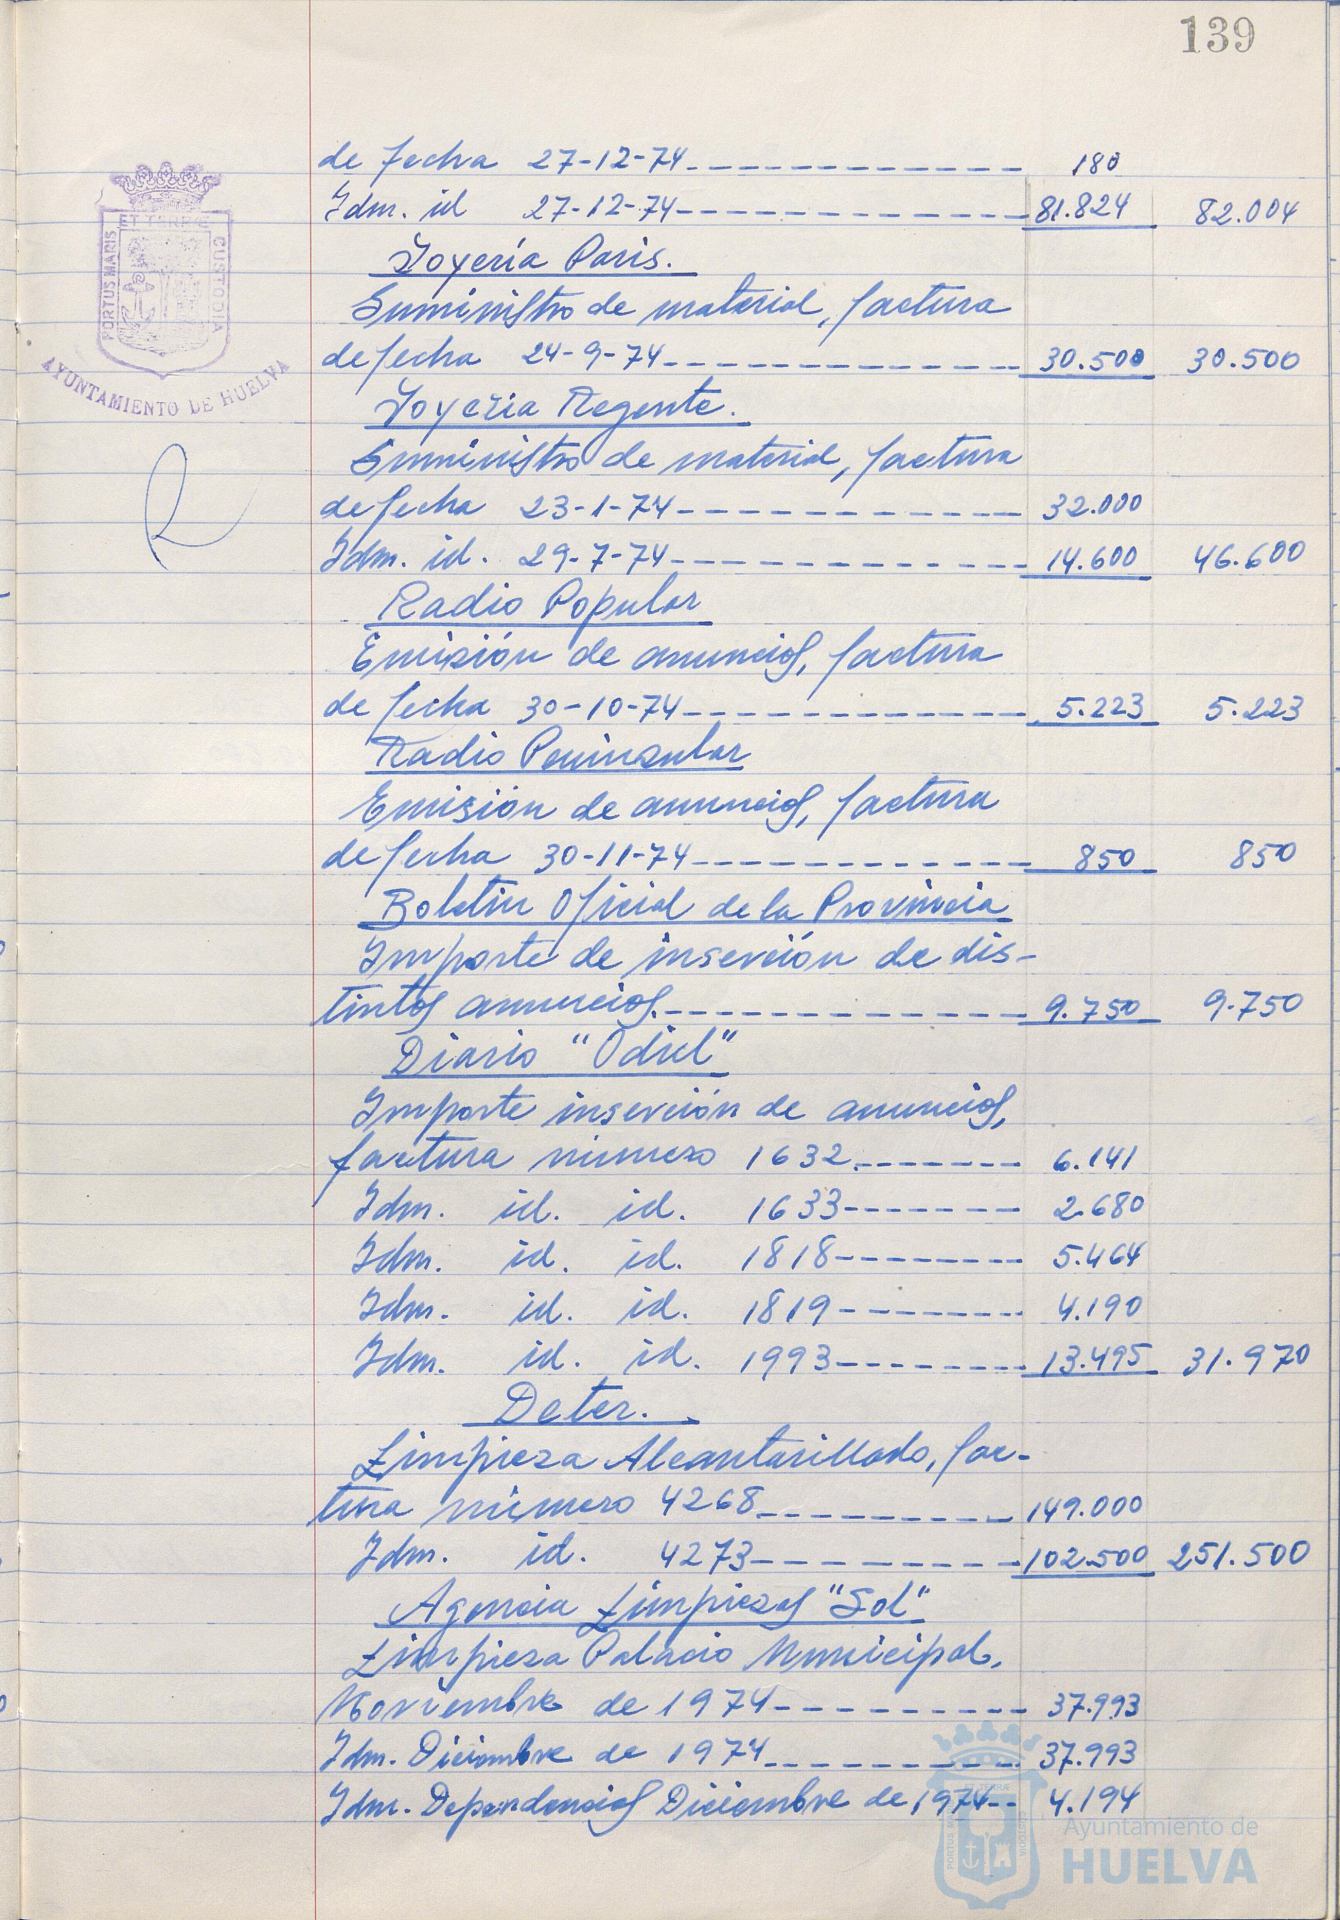 139
de fecha 27-12-74------------- 180
Idm. id 27-12-74------------- 81.824 82.004
Joyería Paris.
Suministro de material, factura
de fecha 24-9-74------------- 30.500 30.500
Joyeria Regente.
Suministro de material, factura
de fecha 23-1-74------------- 32.000
Idm. id. 29-7-74------------- 14.600 46.600
Radio Popular
Emisión de anuncios, factura
de fecha 30-10-74------------- 5.223 5.223
Radio Peninsular
Emisión de anuncios, factura
de fecha 30-11-74------------- 850 850
Boletin Oficial de la Provincia
Importe de inserción de dis-
tintos anuncios.------------- 9.750 9.750
Diario "Odiel"
Importe inserción de anuncios,
factura número 1632.------- 6.141
Idm. id. id. 1633------- 2.680
Idm. id. id. 1818------- 5.464
Idm. id. id. 1819------- 4.190
Idm. id. id. 1993------- 13.495 31.970
Deter.
Limpieza Alcantarillado, fac-
tura número 4268---------- 149.000
Idm. id. 4273---------- 102.500 251.500
Agencia Limpiezas "Sol"
Limpieza Palacio Municipal,
Noviembre de 1974---------- 37.993
Idm. Diciembre de 1974---------- 37.993
Idm. Dependencias Diciembre de 1974-- 4.194
PORTUS MARIS ET TERRÆ CUSTODIA
AYUNTAMIENTO DE HUELVA
PORTUS MARIS ET TERRÆ CUSTODIA
Ayuntamiento de
HUELVA